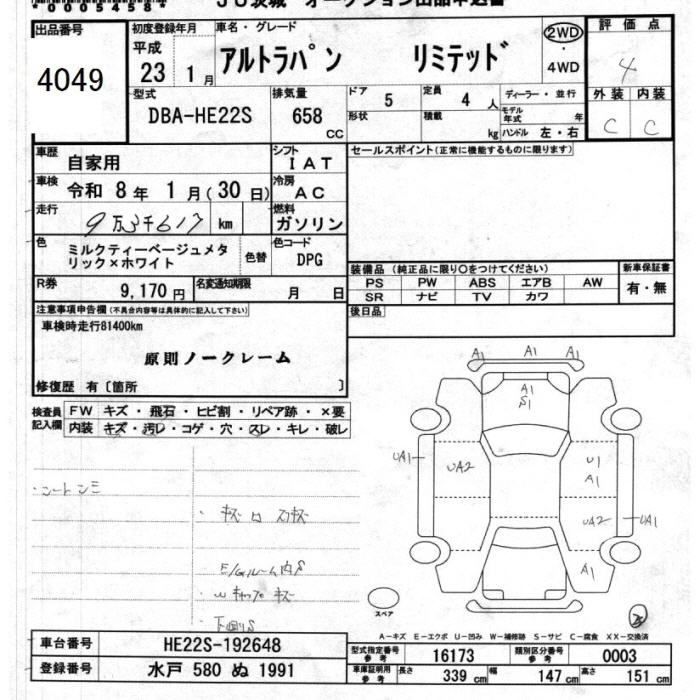 *00054584*
JU茨城 オークション出品申込書
出品番号
4049
初度登録年月
平成
23 1月
車名・グレード
アルトラパン リミテッド
2WD
・
4WD
評価点
4
外装 内装
C C
型式
DBA-HE22S
排気量
658
CC
ドア
5
定員
4 人
形状
積載
kg
ディーラー・並行
モデル年式 年
ハンドル 左・右
車歴
自家用
シフト
IAT
車検
令和 8年 1月(30日)
冷房
AC
走行
9万3千617 km
燃料
ガソリン
色
ミルクティーベージュメタ
リック×ホワイト
色替
色コード
DPG
R券
9,170円
名変通知期限
月 日
セールスポイント(正常に機能するものに限ります)
装備品 (純正品に限り○をつけてください)
PS PW ABS エアB AW
SR ナビ TV カワ
新車保証書
有・無
後日品
注意事項申告欄(不具合内容等は具体的に記入して下さい)
車検時走行81400km
原則ノークレーム
修復歴 有〔箇所 〕
検査員
記入欄
FW キズ・飛石・ヒビ割・リペア跡・×要
内装 キズ・汚レ・コゲ・穴・スレ・キレ・破レ
・シートシミ
・キズ
E/Gルーム内S
キズ
・下回りS
A1 A1 A1
A1
S1
UA1
UA2
U1
A1
UA2
UA1
A1
スペア
A-キズ E-エクボ U-凹み W-補修跡 S-サビ C-腐食 XX-交換済
車台番号
HE22S-192648
登録番号
水戸 580 ぬ 1991
型式指定番号
参考
16173
類別区分番号
参考
0003
車庫証明用
参考
長さ 339 cm
幅 147 cm
高さ 151 cm